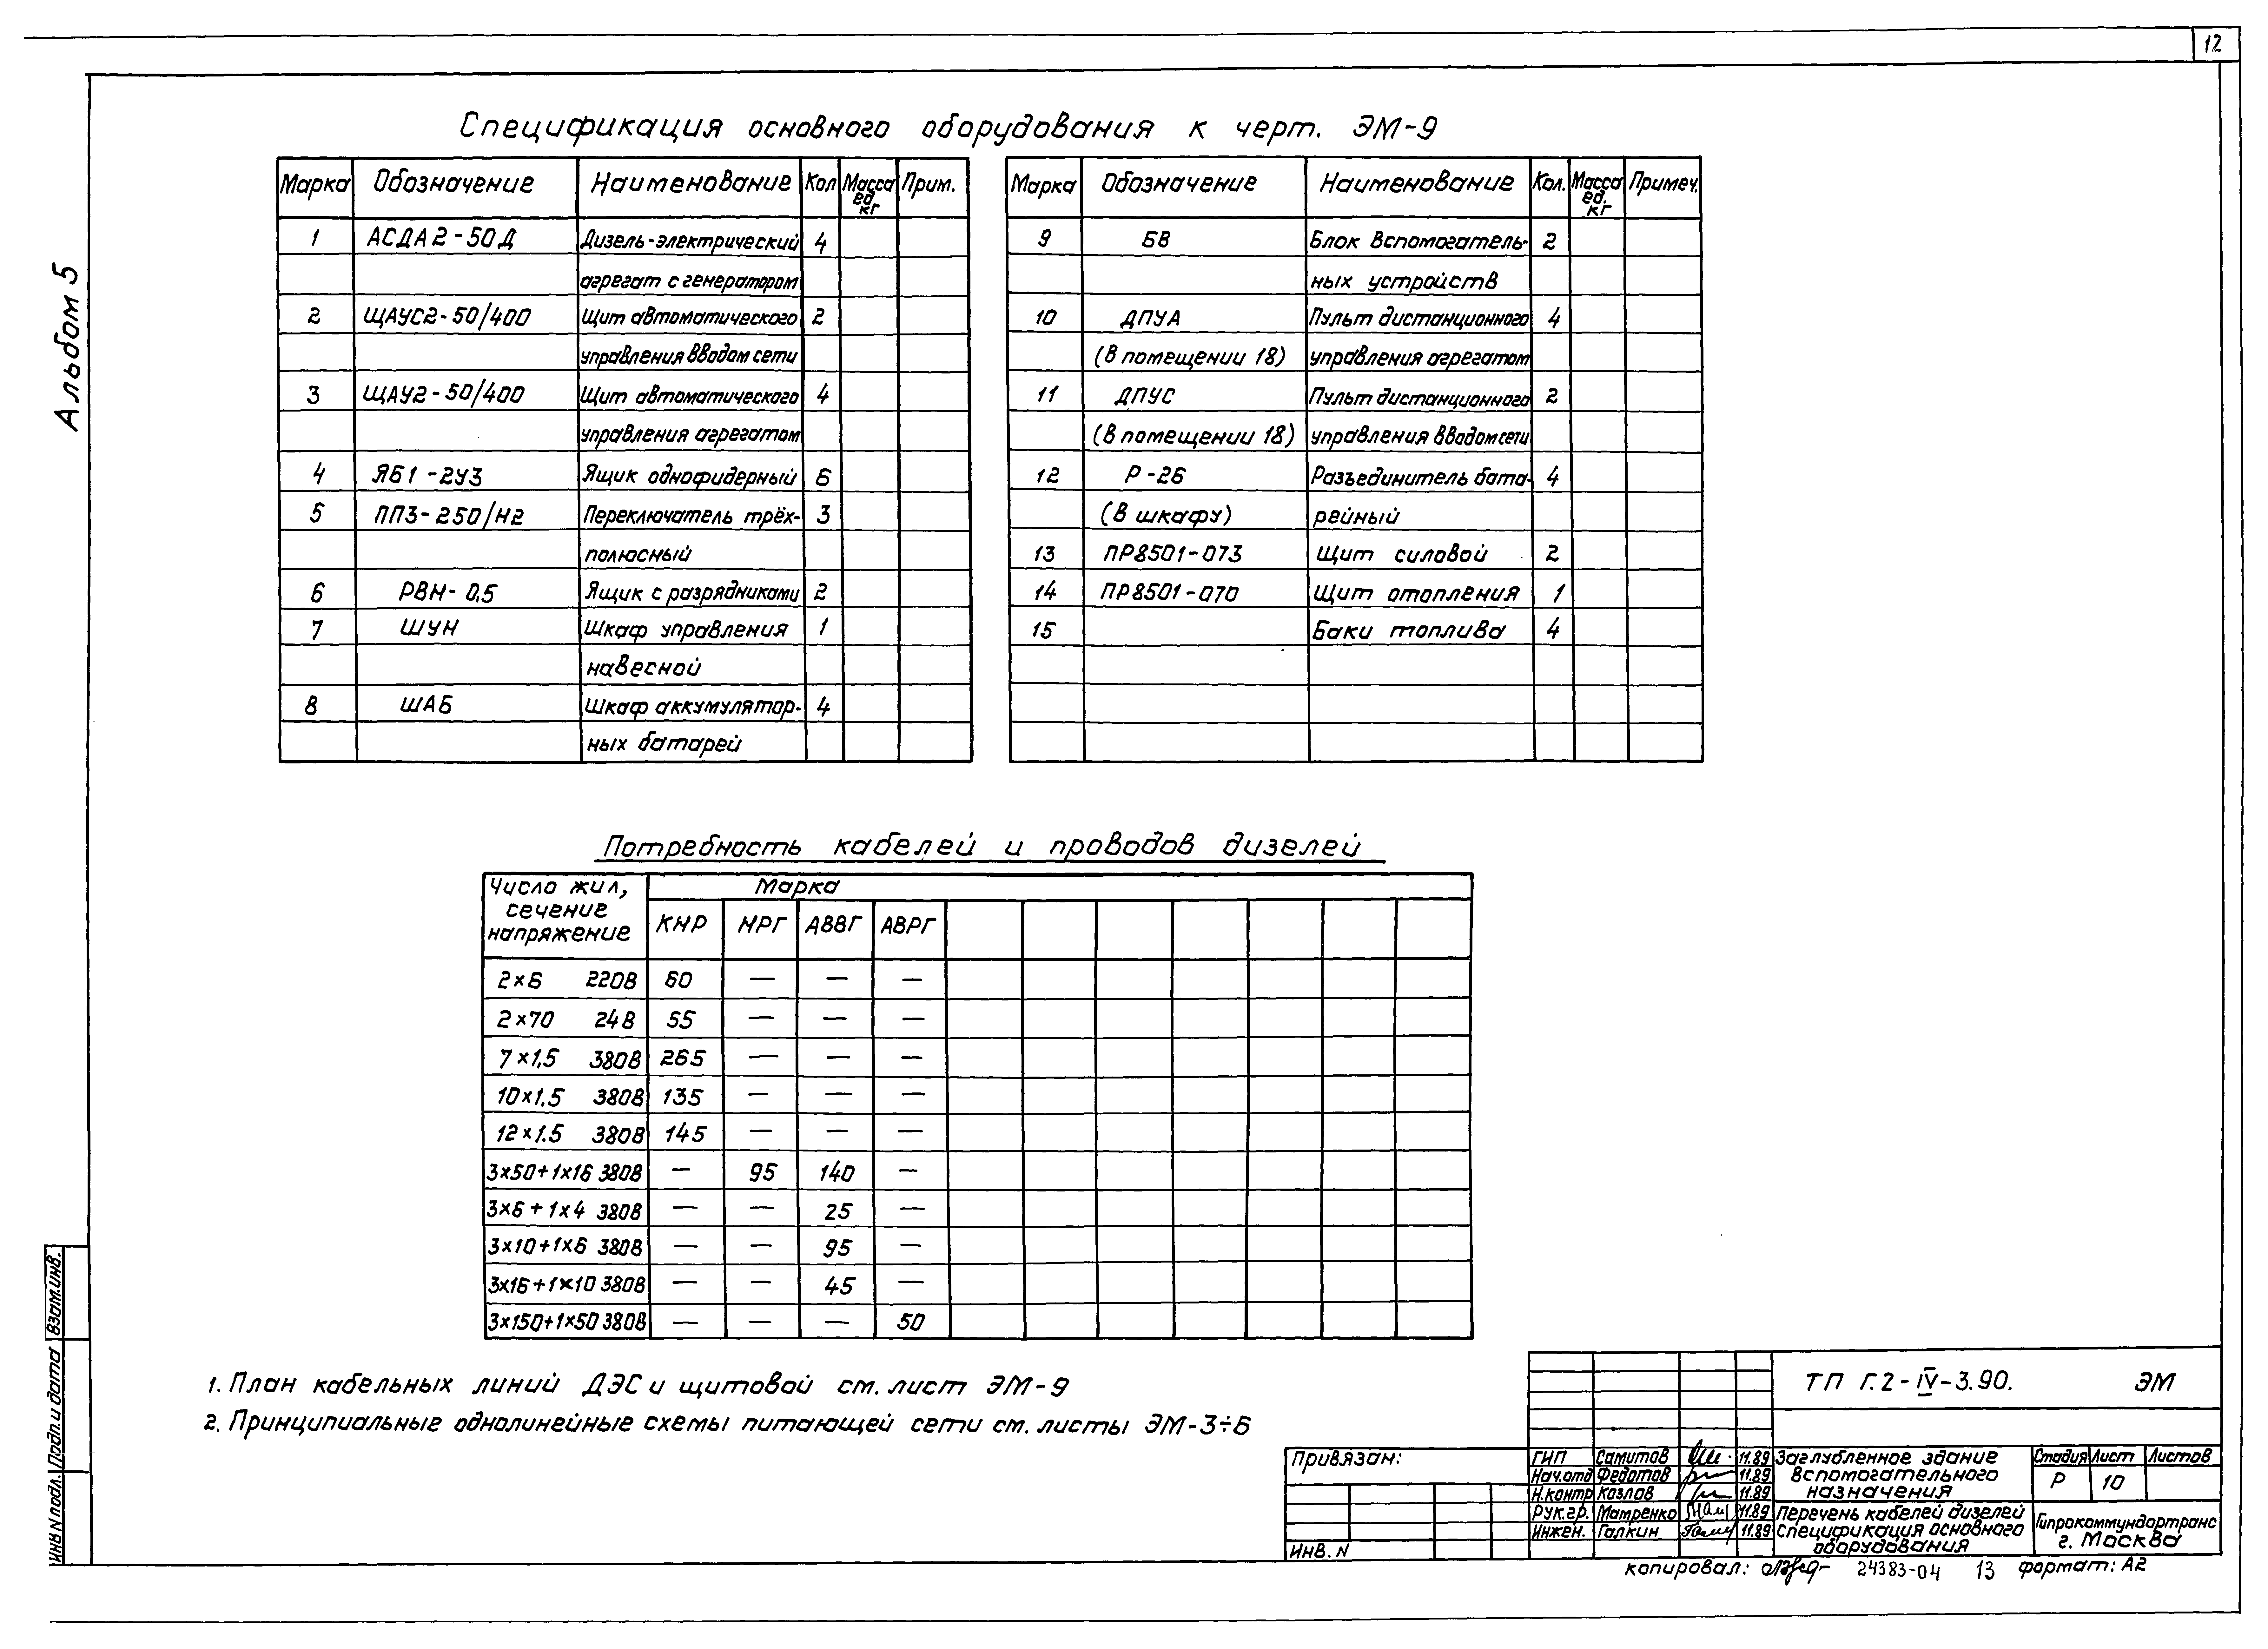 12
Альбом 5
Спецификация основного оборудования к черт. ЭМ-9
Марка Обозначение Наименование Кол Масса ед. кг Прим.
1 АСДА2-50Д Дизель-электрический 4
агрегат с генератором
2 ЩАУС2-50/400 Щит автоматического 2
управления вводом сети
3 ЩАУ2-50/400 Щит автоматического 4
управления агрегатом
4 ЯБ1-2У3 Ящик однофидерный 6
5 ПП3-250/Н2 Переключатель трёх- 3
полюсный
6 РВН-0,5 Ящик с разрядниками 2
7 ШУН Шкаф управления 1
навесной
8 ШАБ Шкаф аккумулятор- 4
ных батарей
Марка Обозначение Наименование Кол. Масса ед. кг Примеч.
9 БВ Блок вспомогатель- 2
ных устройств
10 ДПУА Пульт дистанционного 4
(в помещении 18) управления агрегатом
11 ДПУС Пульт дистанционного 2
(в помещении 18) управления вводом сети
12 Р-26 Разъединитель бата- 4
(в шкафу) рейный
13 ПР8501-073 Щит силовой 2
14 ПР8501-070 Щит отопления 1
15 Баки топлива 4
Потребность кабелей и проводов дизелей
Число жил, сечение напряжение Марка
КНР НРГ АВВГ АВРГ
2×6 220В 60 — — —
2×70 24В 55 — — —
7×1,5 380В 265 — — —
10×1.5 380В 135 — — —
12×1.5 380В 145 — — —
3×50+1×16 380В — 95 140 —
3×6+1×4 380В — — 25 —
3×10+1×6 380В — — 95 —
3×16+1×10 380В — — 45 —
3×150+1×50 380В — — — 50
1. План кабельных линий ДЭС и щитовой см. лист ЭМ-9
2. Принципиальные однолинейные схемы питающей сети см. листы ЭМ-3÷6
ИНВ N подл. Подп. и дата Взам. инв.
Привязан:
ИНВ. N
ТП Г.2-IV-3.90. ЭМ
ГИП Самитов 11.89
Нач.отд Федотов 11.89
Н.контр Козлов 11.89
Рук.гр. Матренко 11.89
Инжен. Галкин 11.89
Заглубленное здание
вспомогательного
назначения
Стадия Лист Листов
Р 10
Перечень кабелей дизелей
Спецификация основного
оборудования
Гипрокоммундортранс
г. Москва
копировал: 24383-04 13 формат: А2